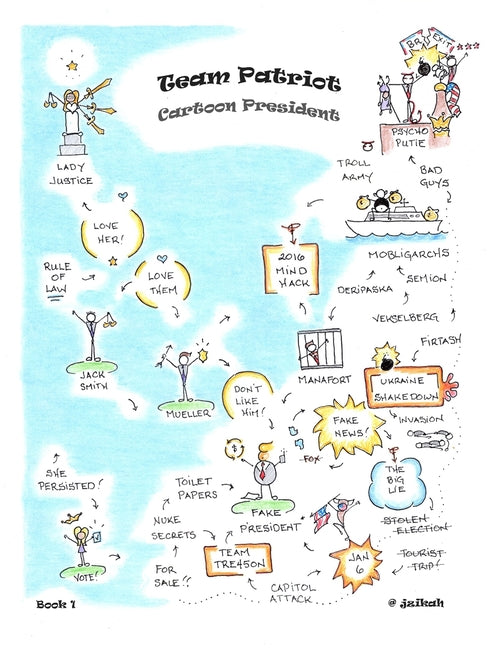 Team Patriot
Cartoon President
BR EXIT
PSYCHO
PUTIE
LADY
JUSTICE
TROLL
ARMY
BAD
GUYS
LOVE
HER!
MOBLIGARCHS
2016
MIND
HACK
RULE
OF
LAW
LOVE
THEM
DERIPASKA
SEMION
VEKSELBERG
FIRTASH
JACK
SMITH
MUELLER
MANAFORT
DON'T
LIKE
HIM!
UKRAINE
SHAKEDOWN
FAKE
NEWS!
INVASION
$
FOX
SHE
PERSISTED!
TOILET
PAPERS
THE
BIG
LIE
FAKE
PRESIDENT
STOLEN
ELECTION
NUKE
SECRETS
TEAM
TRE45ON
JAN
6
TOURIST
TRIP!
VOTE!
FOR
SALE!!
CAPITOL
ATTACK
Book 1
@ jzikah